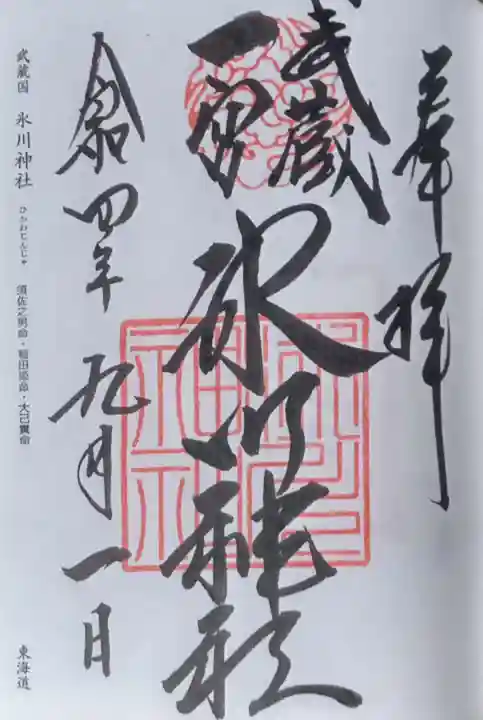 奉拝
武蔵
一宮
氷川神社
令和四年九月一日
武蔵国 氷川神社 ひかわじんじゃ 須佐之男命・稲田姫命・大己貴命 東海道
氷川神社